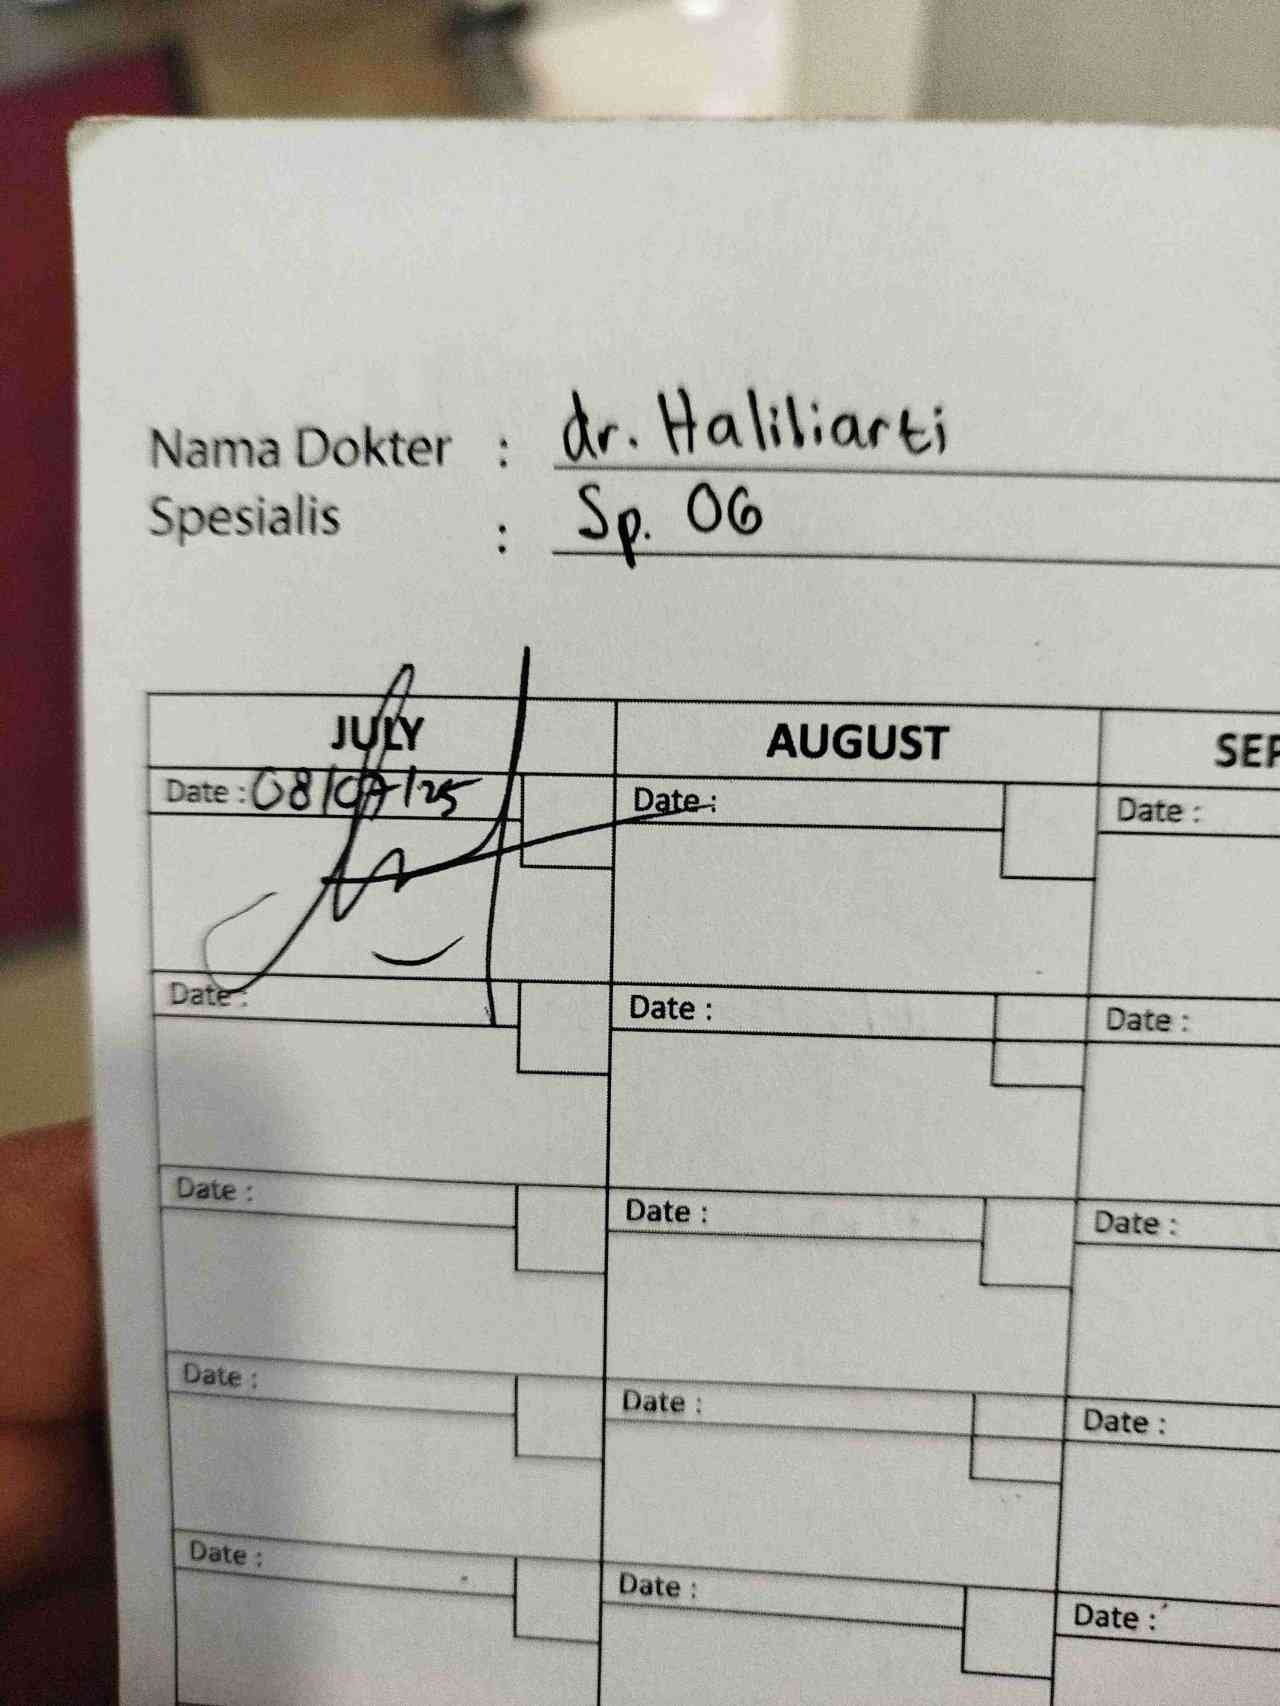 Nama Dokter : dr. Haliliarti
Spesialis : Sp. OG
JULY AUGUST SEP
Date : 08/07/25 Date : Date :
Date : Date : Date :
Date : Date : Date :
Date : Date : Date :
Date : Date : Date :